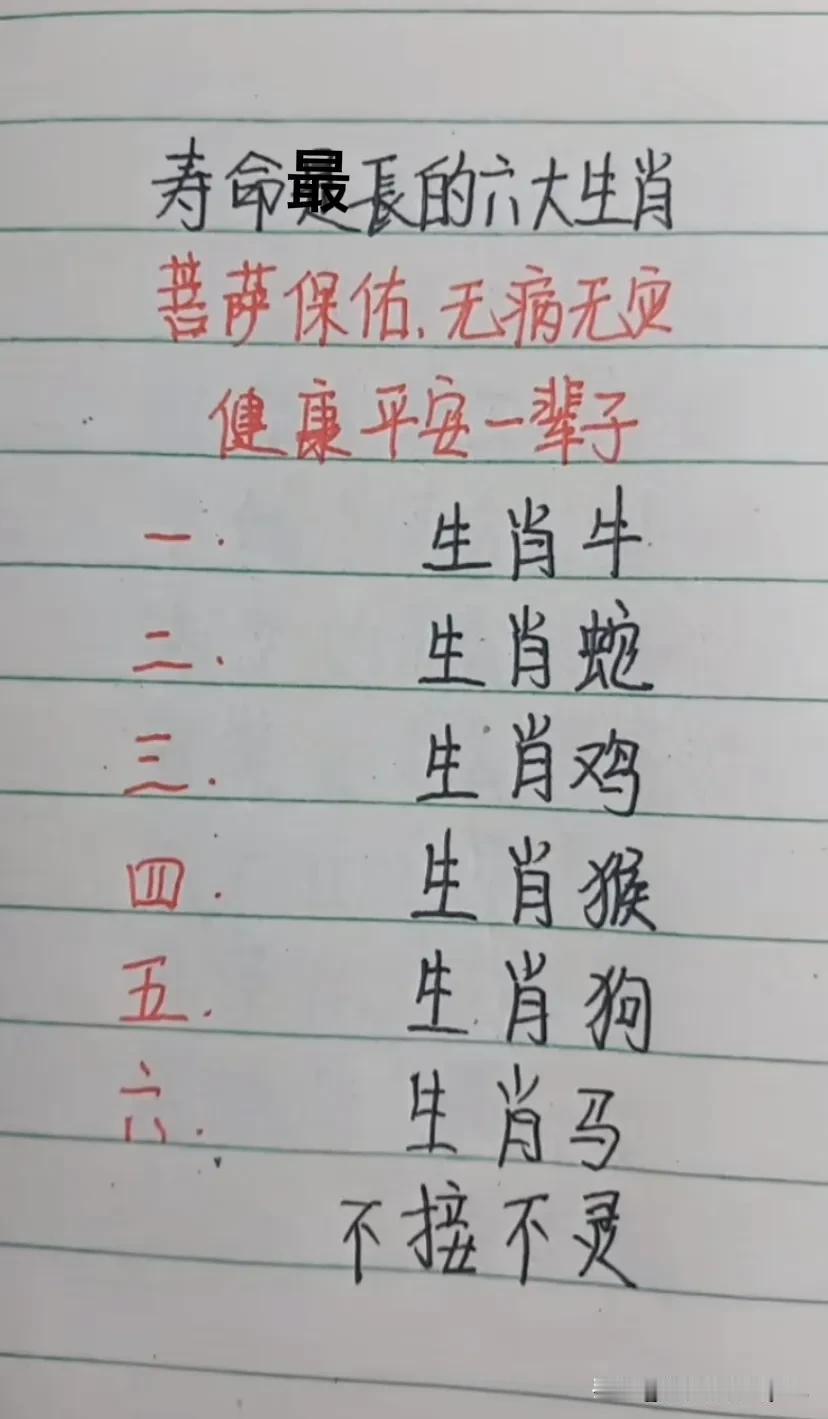 寿命最長的六大生肖
菩萨保佑、无病无灾
健康平安一辈子
一. 生肖牛
二. 生肖蛇
三. 生肖鸡
四. 生肖猴
五. 生肖狗
六. 生肖马
不接不灵